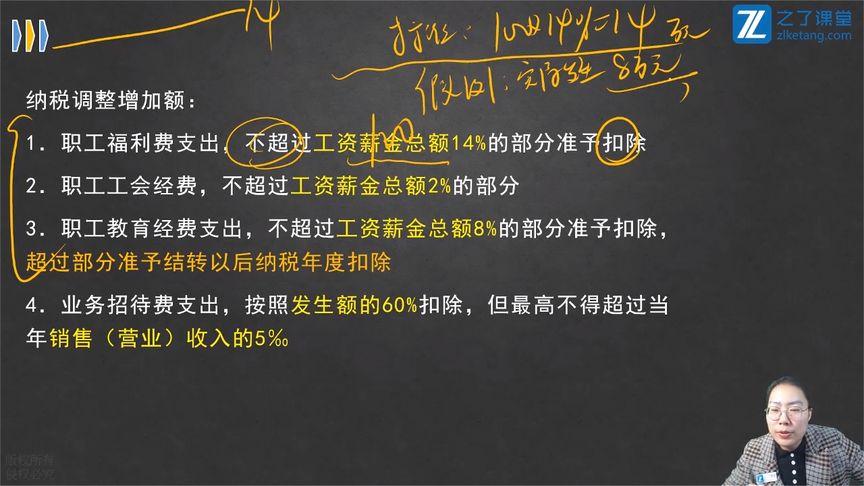 14
扣除：100×14%=14万元
假设1：实际发生8万元
之了课堂
zlketang.com
纳税调整增加额：
100
1．职工福利费支出，不超过工资薪金总额14%的部分准予扣除
2．职工工会经费，不超过工资薪金总额2%的部分
3．职工教育经费支出，不超过工资薪金总额8%的部分准予扣除，
超过部分准予结转以后纳税年度扣除
4．业务招待费支出，按照发生额的60%扣除，但最高不得超过当
年销售（营业）收入的5‰
版权所有
侵权必究